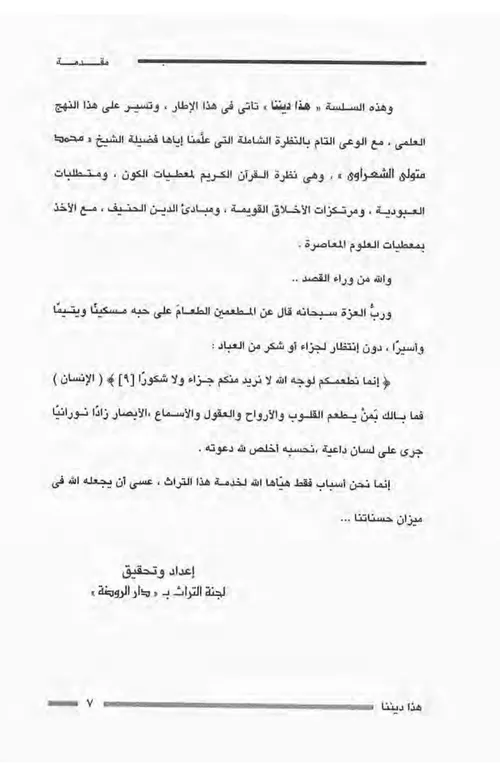 مقـــدمـــة
وهذه السلسة « هذا ديننا » تأتى فى هذا الإطار ، وتسيـر على هذا النهج
العلمى ، مع الوعى التام بالنظرة الشاملة التى علَّمنا إياها فضيلة الشيخ « محمد
متولى الشعراوى » ، وهى نظرة القرآن الكريم لمعطيات الكون ، ومتطلبات
العبودية ، ومرتكزات الأخلاق القويمة ، ومبادئ الدين الحنيف ، مع الأخذ
بمعطيات العلوم المعاصرة .
والله من وراء القصد ..
وربُّ العزة سبحانه قال عن المطعمين الطعامَ على حبه مسكينًا ويتيمًا
وأسيرًا ، دون إنتظار لجزاء أو شكر من العباد :
﴿ إنما نطعمكم لوجه الله لا نريد منكم جزاء ولا شكورًا [٩] ﴾ ( الإنسان )
فما بالك بَمنْ يطعم القلوب والأرواح والعقول والأسماع ،الأبصار زادًا نورانيًا
جرى على لسان داعية ،نحسبه أخلص لله دعوته .
إنما نحن أسباب فقط هيّأها الله لخدمة هذا التراث ، عسى أن يجعله الله فى
ميزان حسناتنا ...
إعداد وتحقيق
لجنة التراث بـ « دار الروضة »
هذا ديننا ٧